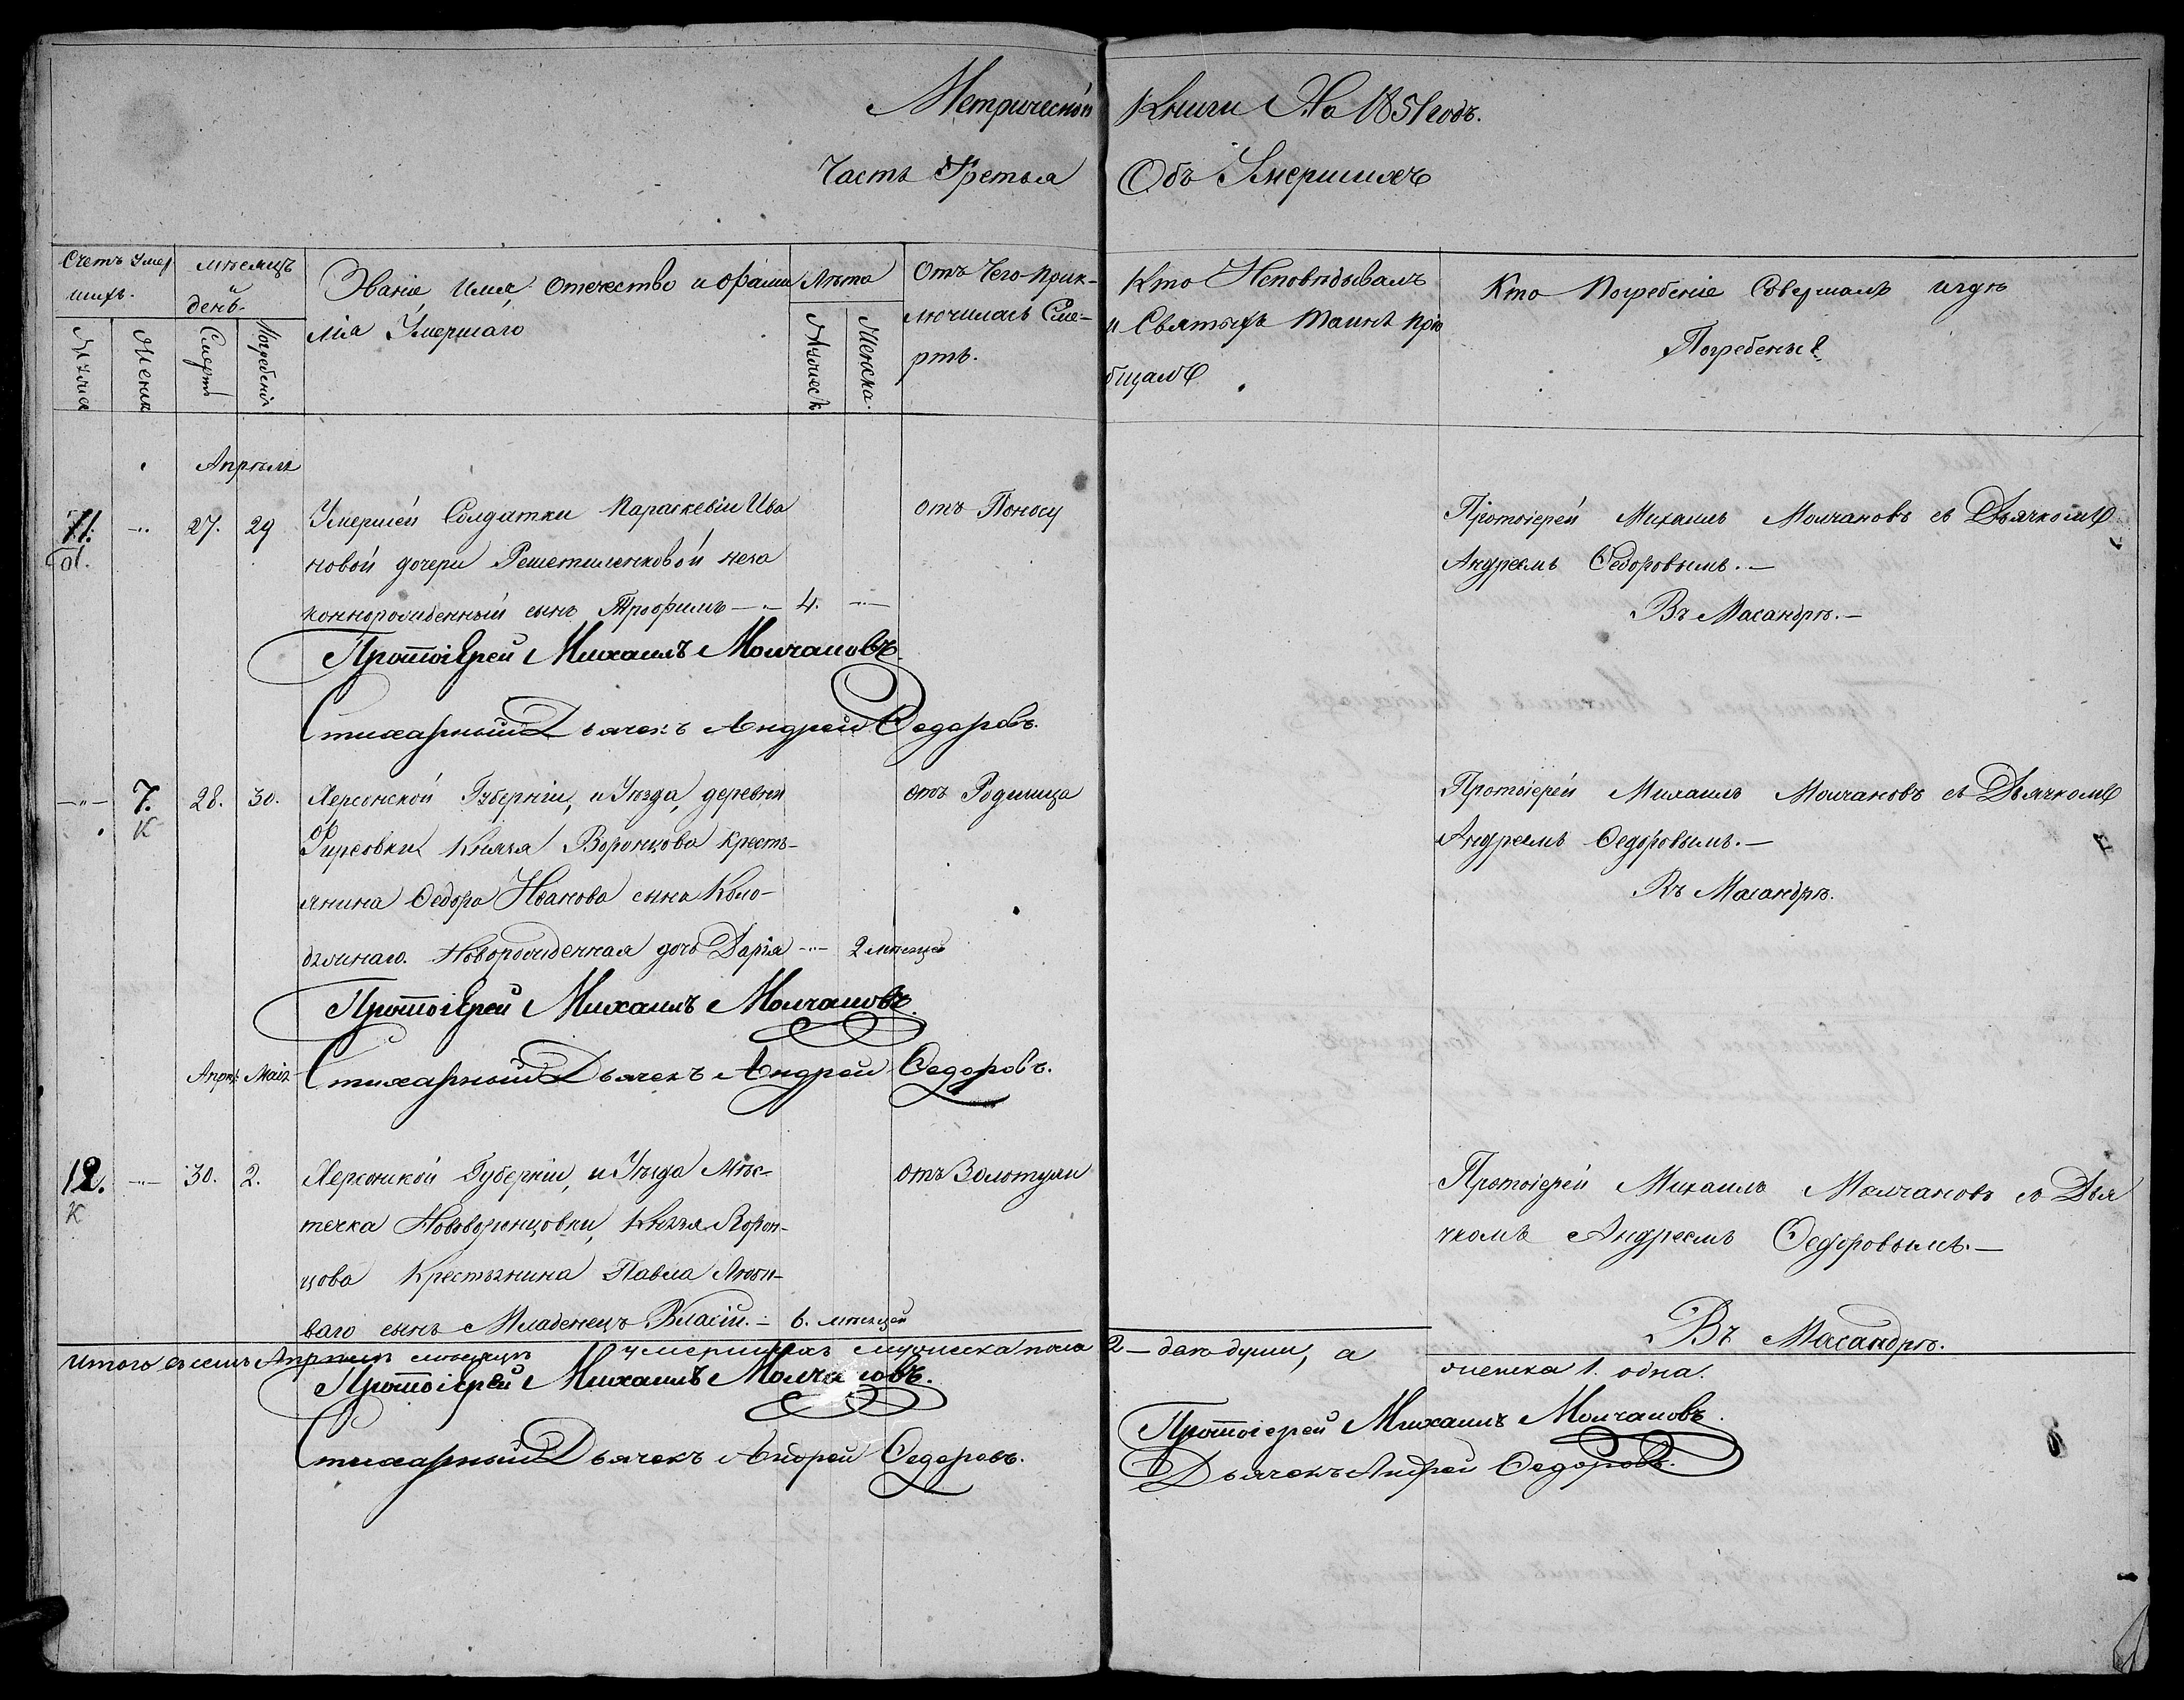 Метрической Книги На 1851 годъ.
Часть Третья Объ Умершихъ
Счетъ Умер
шихъ.
мѣсяцъ
и
день.
Званіе Имя, Отечество и фами
лія Умершаго
Лѣта
Отъ Чего прик-
лючилась Сме-
рть.
Кто Исповѣдывалъ
и Святыхъ Таинъ прiо
бщалъ
Кто Погребеніе Совершалъ и гдѣ
Погребены?
Мужеска
Женска
Смерти
Погребенія
Мужеск
Женска.
Апрѣль
11. -"- 27. 29 Умершей Солдатки Параскевіи Ива
новой дочери Решетиленковой неза
коннорожденный сынъ Трофимъ -"- 4. -"-
отъ Поносу
Протоіерей Михаилъ Молчановъ съ Дьячкомъ
Андреемъ Ѳедоровымъ. —
Въ Масандрѣ. —
Протоіерей Михаилъ Молчановъ.
Стихарный Дьячекъ Андрей Ѳедоровъ.
-"- 7. 28. 30. Херсонской Губерніи, и Уѣзда, деревни
К
Князя Воронцова Кресть-
янина Ѳедора Иванова сына Коло-
Новорожденная дочь Дарія -"- 2 мѣсяца
отъ Родимца
Протоіерей Михаилъ Молчановъ съ Дьячкомъ
Андреемъ Ѳедоровымъ. —
Въ Масандрѣ.
Протоіерей Михаилъ Молчановъ.
Апрѣ. Маія Стихарный Дьячекъ Андрей Ѳедоровъ.
12. -"- 30. 2. Херсонской Губерніи, и Уѣзда Мѣс-
К
течка Нововоронцовки, Князя Ворон-
цова Крестьянина Павла Люби-
ваго сынъ Младенецъ Власій. - 6. мѣсяцей
отъ Золотухи
Протоіерей Михаилъ Молчановъ съ Дья
чкомъ Андреемъ Ѳедоровымъ. —
Въ Масандрѣ.
Итого въ семъ Апрѣлѣ мѣсяцѣ умершихъ мужеска пола 2 — двѣ души, а
женска 1. одна.
Протоіерей Михаилъ Молчановъ.
Стихарный Дьячекъ Андрей Ѳедоровъ.
Протоіерей Михаилъ Молчановъ.
Дьячекъ Андрей Ѳедоровъ.